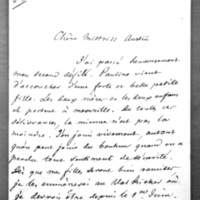 Chère Mistriss Austin
J'ai passé heureusement
mon second défilé. Pauline vient
d'accoucher d'une forte et belle petite
fille. Les deux mères et les deux enfans
se portent à merveille. De toutes ces
délivrances, la mienne n'est pas la
moindre. J'en jouis vivement, autant
qu'on peut jouir du bonheur quand on a
perdu tout sentiment de sécurité.
Dès que ma fille sera bien remise,
je les emmènerai au Val Richer où
je devrais être depuis le 1er Juin.